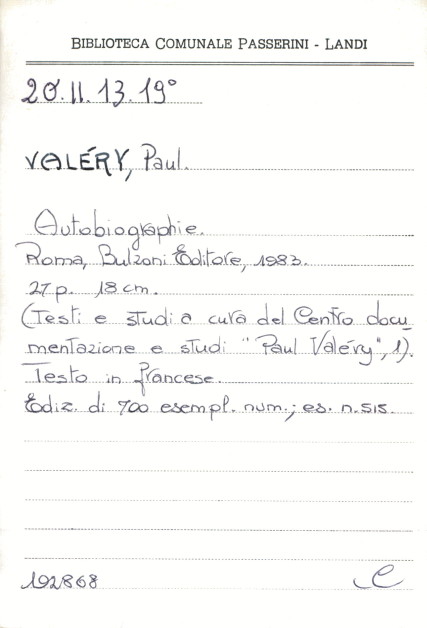 BIBLIOTECA COMUNALE PASSERINI - LANDI
20.II.13.19°
VALÉRY, Paul.
Autobiographie.
Roma, Bulzoni Editore, 1983.
27 p. 18 cm.
(Testi e studi a cura del Centro docu-
mentazione e studi "Paul Valéry", 1).
Testo in francese.
Ediz. di 700 esempl. num.; es. n. 515.
192868 C